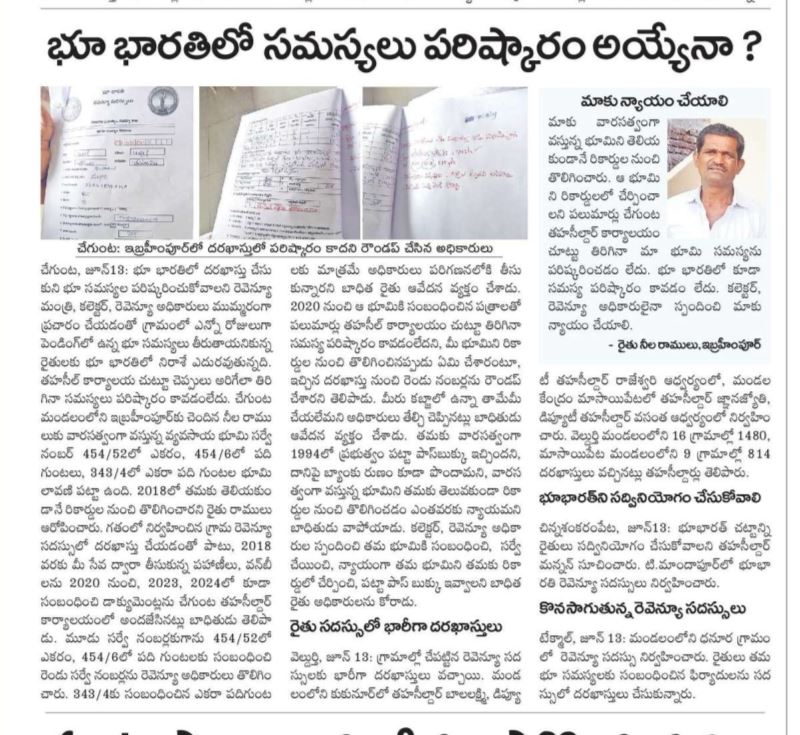 భూ భారతిలో సమస్యలు పరిష్కారం అయ్యేనా ?
చేగుంట: ఇబ్రహీంపూర్‌లో దరఖాస్తులో పరిష్కారం కాదని రౌండప్ చేసిన అధికారులు
చేగుంట, జూన్13: భూ భారతిలో దరఖాస్తు చేసు
కుని భూ సమస్యల పరిష్కుకోవాలని రెవెన్యూ
మంత్రి, కలెక్టర్, రెవెన్యూ అధికారులు ముమ్మరంగా
ప్రచారం చేయడంతో గ్రామంలో ఎన్నో రోజులుగా
పెండింగ్‌లో ఉన్న భూ సమస్యలు తీరుతాయనుకున్న
రైతులకు భూ భారతిలో నిరాశే ఎదురువుతున్నది.
తహసీల్ కార్యాలయ చుట్టూ చెప్పులు అరిగేలా తిరి
గినా సమస్యలు పరిష్కారం కావడంలేదు. చేగుంట
మండలంలోని ఇబ్రహీంపూర్‌కు చెందిన నీల రాము
లుకు వారసత్వంగా వస్తున్న వ్యవసాయ భూమి సర్వే
నంబర్ 454/52లో ఎకరం, 454/6లో పది
గుంటలు, 343/4లో ఎకరా పది గుంటల భూమి
లావణి పట్టా ఉంది. 2018లో తమకు తెలియకుం
డానే రికార్డుల నుంచి తొలిగించారని రైతు రాములు
ఆరోపించారు. గతంలో నిర్వహించిన గ్రామ రెవెన్యూ
సదస్సులో దరఖాస్తు చేయడంతో పాటు, 2018
వరకు మీ సేవ ద్వారా తీసుకున్న పహాణీలు, వన్‌బీ
లను 2020 నుంచి, 2023, 2024లో కూడా
సంబంధించి డాక్యుమెంట్లను చేగుంట తహసీల్దార్
కార్యాలయంలో అందజేసినట్లు బాధితుడు తెలిపా
డు. మూడు సర్వే నంబర్లకుగాను 454/52లో
ఎకరం, 454/6లో పది గుంటలకు సంబంధించి
రెండు సర్వే నంబర్లను రెవెన్యూ అధికారులు తొలిగిం
చారు. 343/4కు సంబంధించిన ఎకరా పదిగుంట
లకు మాత్రమే అధికారులు పరిగణనలోకి తీసు
కున్నారని బాధిత రైతు ఆవేదన వ్యక్తం చేశాడు.
2020 నుంచి ఆ భూమికి సంబంధించిన పత్రాలతో
పలుమార్లు తహసీల్ కార్యాలయం చుట్టూ తిరిగినా
సమస్య పరిష్కారం కావడంలేదని, మీ భూమిని రికా
ర్డుల నుంచి తొలగించినప్పుడు ఏమి చేశారంటూ,
ఇచ్చిన దరఖాస్తు నుంచి రెండు నంబర్లను రౌండప్
చేశారని తెలిపాడు. మీరు కబ్జాలో ఉన్నా తామేమీ
చేయలేమని అధికారులు తేల్చి చెప్పినట్లు బాధితుడు
ఆవేదన వ్యక్తం చేశాడు. తమకు వారసత్వంగా
1994లో ప్రభుత్వం పట్టా పాస్‌బుక్కు ఇచ్చిందని,
దానిపై బ్యాంకు రుణం కూడా పొందామని, వారస
త్వంగా వస్తున్న భూమిని తమకు తెలువకుండా రికా
ర్డుల నుంచి తొలిగించడం ఎంతవరకు న్యాయమని
బాధితుడు వాపోయాడు. కలెక్టర్, రెవెన్యూ అధికా
రుల స్పందించి తమ భూమికి సంబంధించి, సర్వే
చేయించి, న్యాయంగా తమ భూమిని తమకు రికా
ర్డులో చేర్పించి, పట్టా పాస్ బుక్కు ఇవ్వాలని బాధిత
రైతు అధికారులను కోరాడు.
రైతు సదస్సులో భారీగా దరఖాస్తులు
వెల్దుర్తి, జూన్ 13: గ్రామాల్లో చేపట్టిన రెవెన్యూ సద
స్సులకు భారీగా దరఖాస్తులు వచ్చాయి. మండ
లంలోని కుకునూర్‌లో తహసీల్దార్ బాలలక్ష్మి, డిప్యూ
మాకు న్యాయం చేయాలి
మాకు వారసత్వంగా
వస్తున్న భూమిని తెలియ
కుండానే రికార్డుల నుంచి
తొలిగించారు. ఆ భూమి
ని రికార్డులలో చేర్పించా
లని పలుమార్లు చేగుంట
తహసీల్దార్ కార్యాలయం
చుట్టు తిరిగినా మా భూమి సమస్యను
పరిష్కరించడం లేదు. భూ భారతిలో కూడా
సమస్య పరిష్కారం కావడం లేదు. కలెక్టర్,
రెవెన్యూ అధికారులైనా స్పందించి మాకు
న్యాయం చేయాలి.
- రైతు నీల రాములు,ఇబ్రహీంపూర్
టీ తహసీల్దార్ రాజేశ్వరి ఆధ్వర్యంలో, మండల
కేంద్రం మాసాయిపేటలో తహసీల్దార్ జ్ఞానజ్యోతి,
డిప్యూటీ తహసీల్దార్ వసంత ఆధ్వర్యంలో నిర్వహిం
చారు. వెల్దుర్తి మండలంలోని 16 గ్రామాల్లో 1480,
మాసాయిపేట మండలంలోని 9 గ్రామాల్లో 814
దరఖాస్తులు వచ్చినట్లు తహసీల్దార్లు తెలిపారు.
భూభారత్‌ని సద్వినియోగం చేసుకోవాలి
చిన్నశంకరంపేట, జూన్13: భూభారత్ చట్టాన్ని
రైతులు సద్వినియోగం చేసుకోవాలని తహసీల్దార్
మన్నన్ సూచించారు. టి.మాందాపూర్‌లో భూభా
రతి రెవెన్యూ సదస్సులు నిర్వహించారు.
కొనసాగుతున్న రెవెన్యూ సదస్సులు
టేక్మాల్, జూన్ 13: మండలంలోని ధనూర గ్రామం
లో రెవెన్యూ సదస్సు నిర్వహించారు. రైతులు తమ
భూ సమస్యలకు సంబంధించిన ఫిర్యాదులను సద
స్సులో దరఖాస్తులు చేసుకున్నారు.